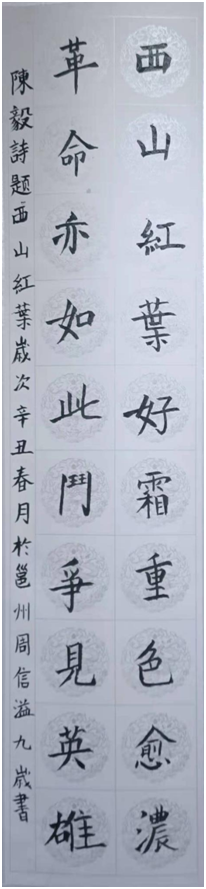 西山紅葉好霜重色愈濃
革命亦如此鬥爭見英雄
陳毅詩题西山紅葉歲次辛丑春月於邕州周信溢九歲書